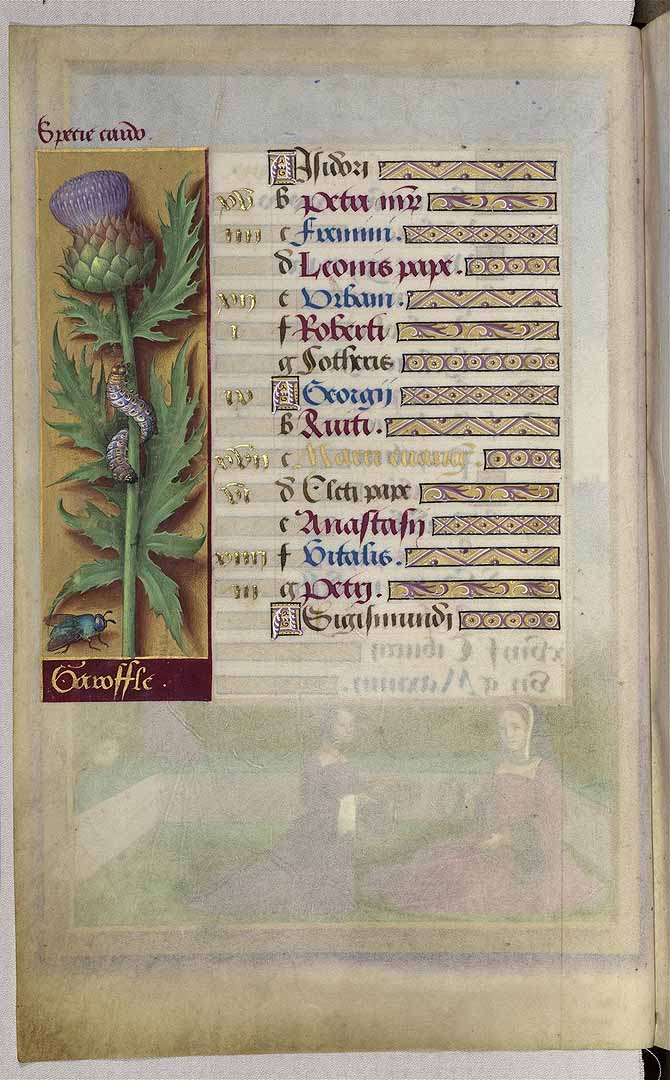 Specie cardo.
A Isidori
xv b Petri mr̄
iiii c Firmini.
d Leonis pape.
xii e Urbani.
i f Roberti
g Sotheris
ix A Georgii
b Ruffi.
xvii c Marci euang̃.
vi d Cleti pape
e Anastasii
xiiii f Vitalis.
iii g Petri.
A Sigismundi
Garoffle.